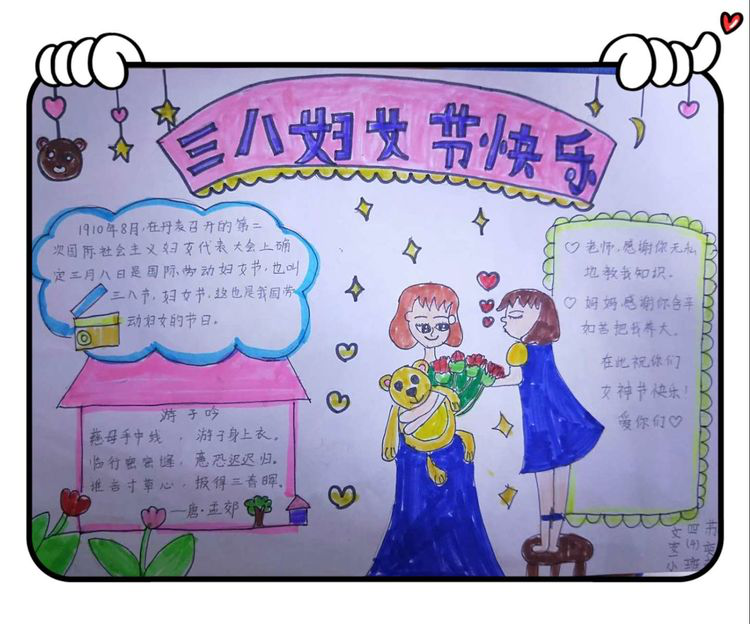 三八妇女节快乐
1910年8月,在丹麦召开的第二
次国际社会主义妇女代表大会上确
定三月八日是国际劳动妇女节,也叫
三八节,妇女节,这也是我国劳
动妇女的节日。
游子吟
慈母手中线 , 游子身上衣。
临行密密缝 , 意恐迟迟归。
谁言寸草心 , 报得三春晖。
—唐·孟郊
老师,感谢你无私
地教我知识。
妈妈,感谢你含辛
如苦把我养大。
在此祝你们
女神节快乐!
爱你们
四(4)班